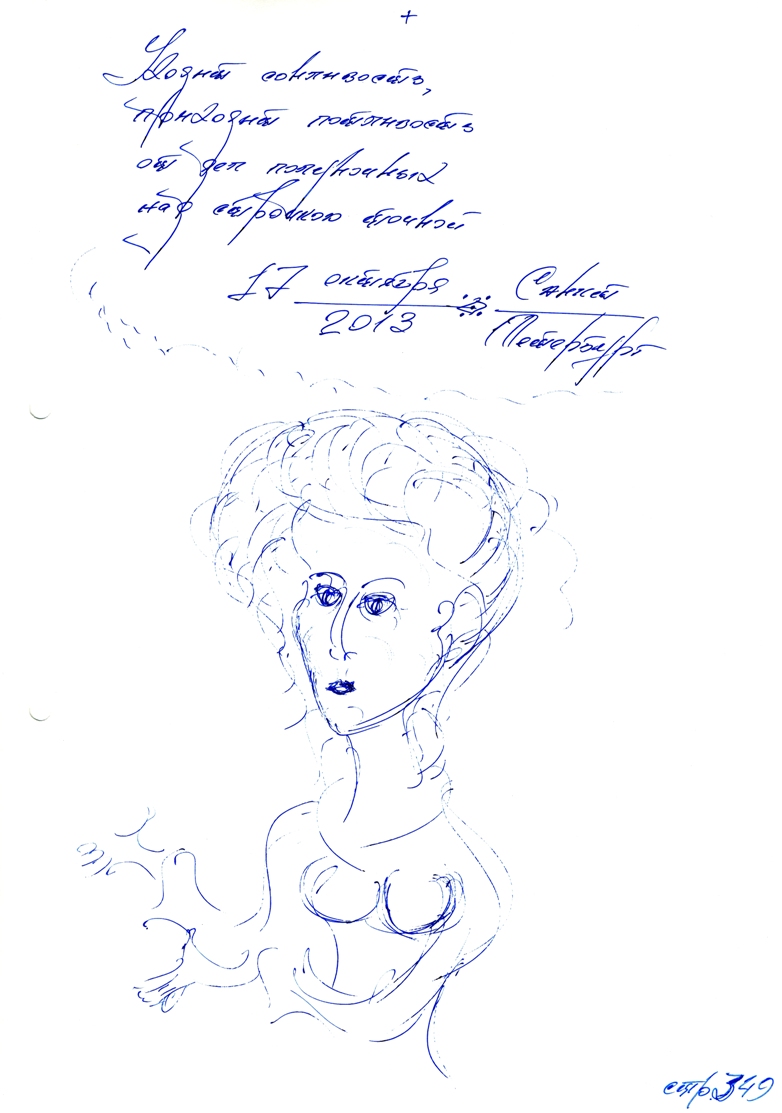 +
Уходит сонливость,
приходит потливость
от дел полуночных
над строкою точной
17 октября
2013
Санкт
Петербург
стр. 349